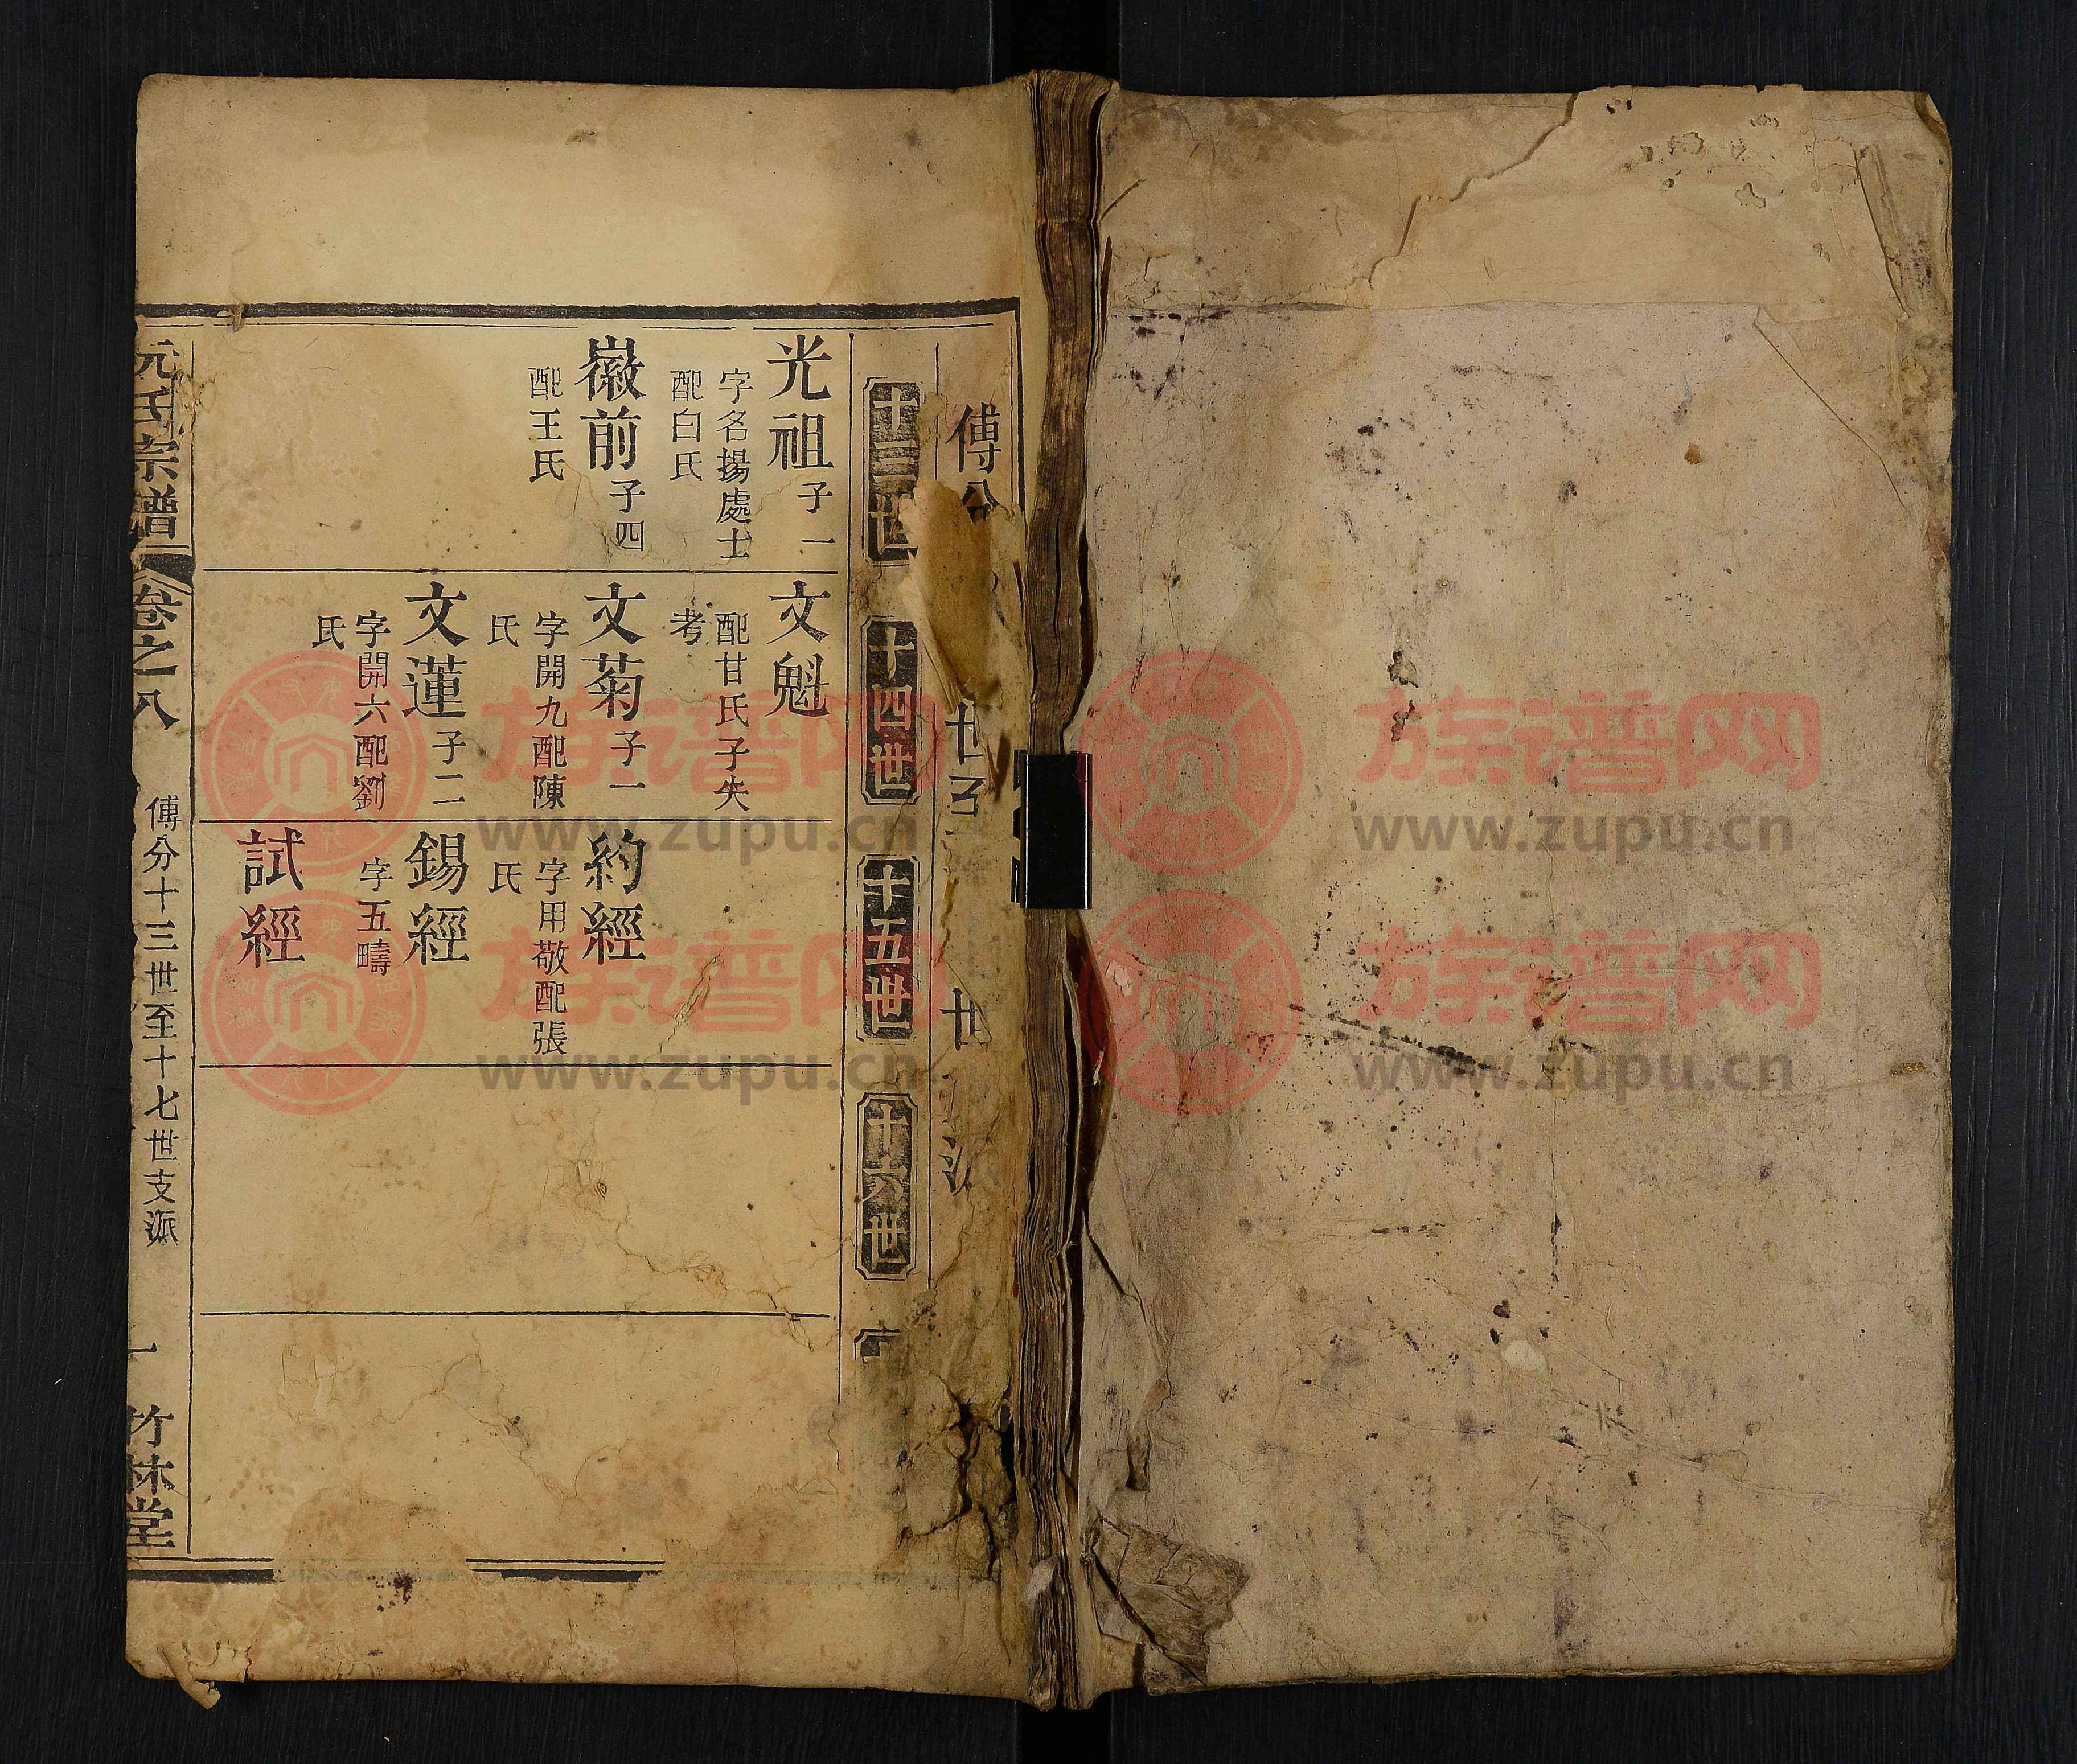 傅分
世至
世
派
十三世
十四世
十五世
十六世
光祖子一
字名揚處士
配白氏
徽前子四
配王氏
文魁
配甘氏子失
考
文菊子一
字開九配陳
氏
文蓮子二
字開六配劉
氏
約經
字用敬配張
氏
錫經
字五疇
試經
氏宗譜
卷之八
傅分十三世至十七世支派
一
竹林堂
族谱网
www.zupu.cn
族谱网
www.zupu.cn
族谱网
www.zupu.cn
族谱网
www.zupu.cn